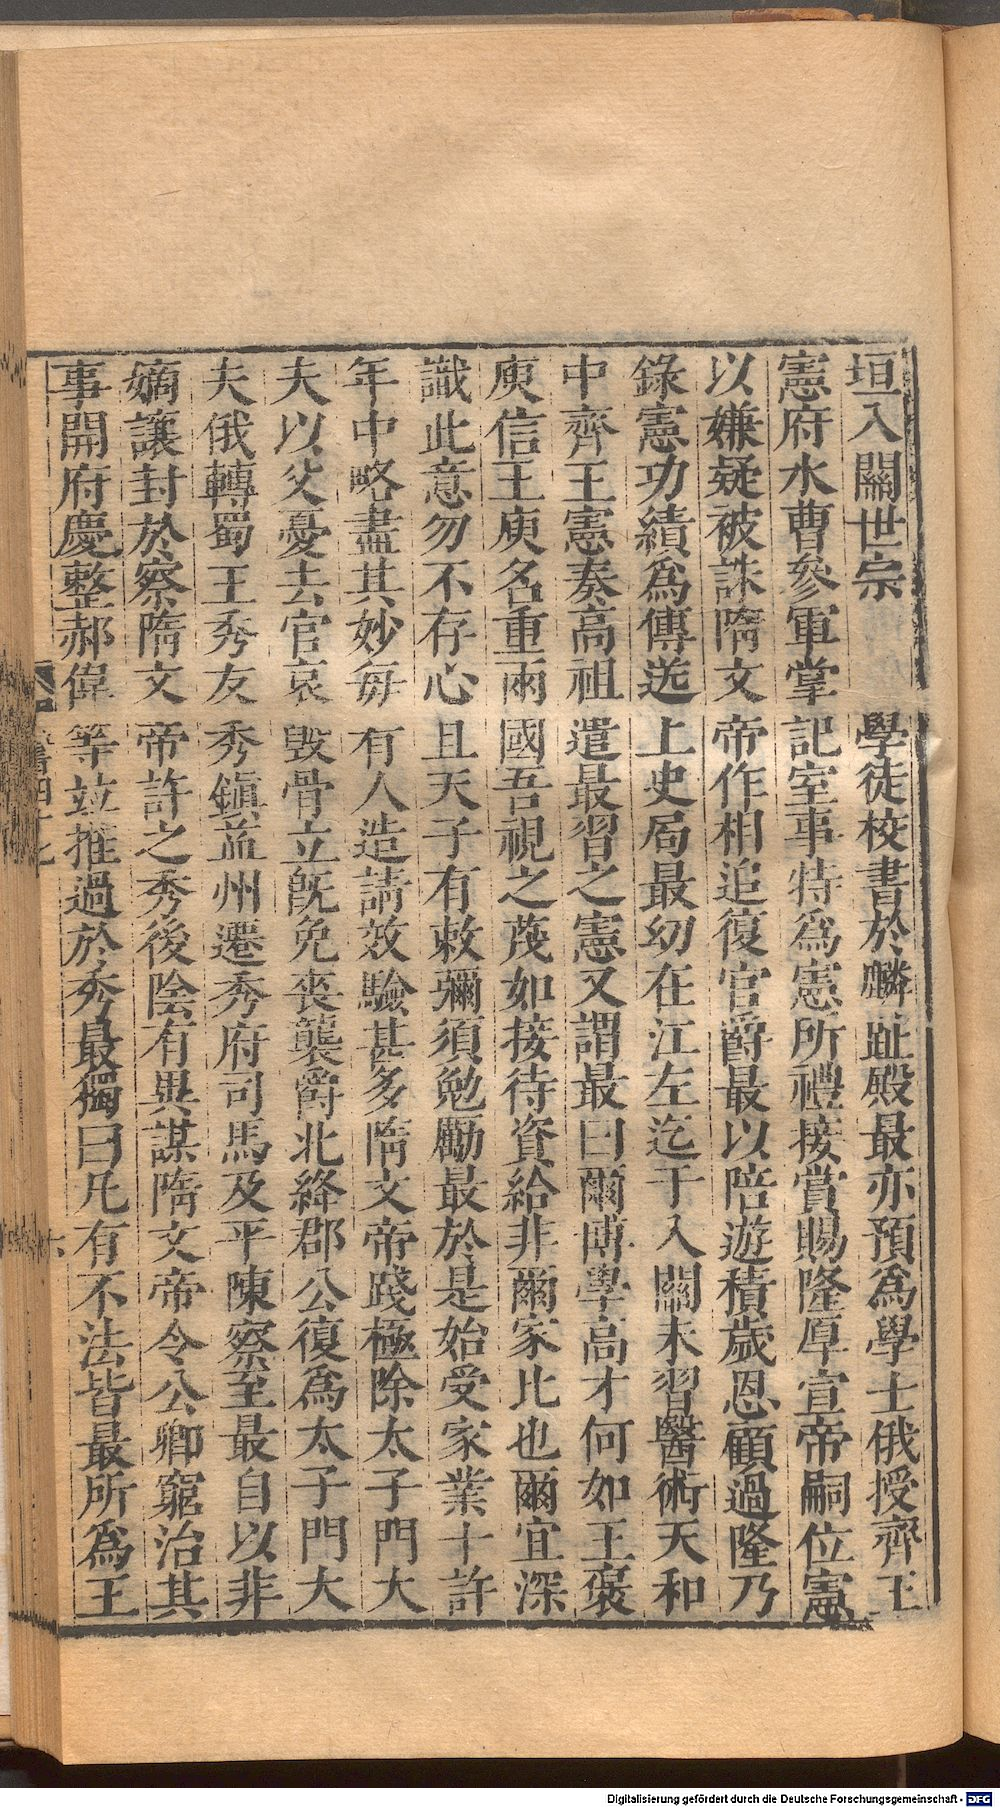 垣入關世宗　　學徒校書於麟趾殿最亦預爲學士俄授齊王
憲府水曹參軍掌記室事特爲憲所禮接賞賜隆厚宣帝嗣位憲
以嫌疑被誅隋文帝作相追復官爵最以陪遊積歲恩顧過隆乃
錄憲功績爲傳送上史局最幼在江左迄于入關未習醫術天和
中齊王憲奏高祖遣最習之憲又謂最曰爾博學高才何如王褒
庾信王庾名重兩國吾視之蔑如接待資給非爾家比也爾宜深
識此意勿不存心且天子有敕彌須勉勵最於是始受家業十許
年中略盡其妙每有人造請效驗甚多隋文帝踐極除太子門大
夫以父憂去官哀毀骨立旣免喪襲爵北絳郡公復爲太子門大
夫俄轉蜀王秀友秀鎭益州遷秀府司馬及平陳察至最自以非
嫡讓封於察隋文帝許之秀後陰有異謀隋文帝令公卿窮治其
事開府慶整郝偉等竝推過於秀最獨曰凡有不法皆最所爲王
Digitalisierung gefördert durch die Deutsche Forschungsgemeinschaft - DFG